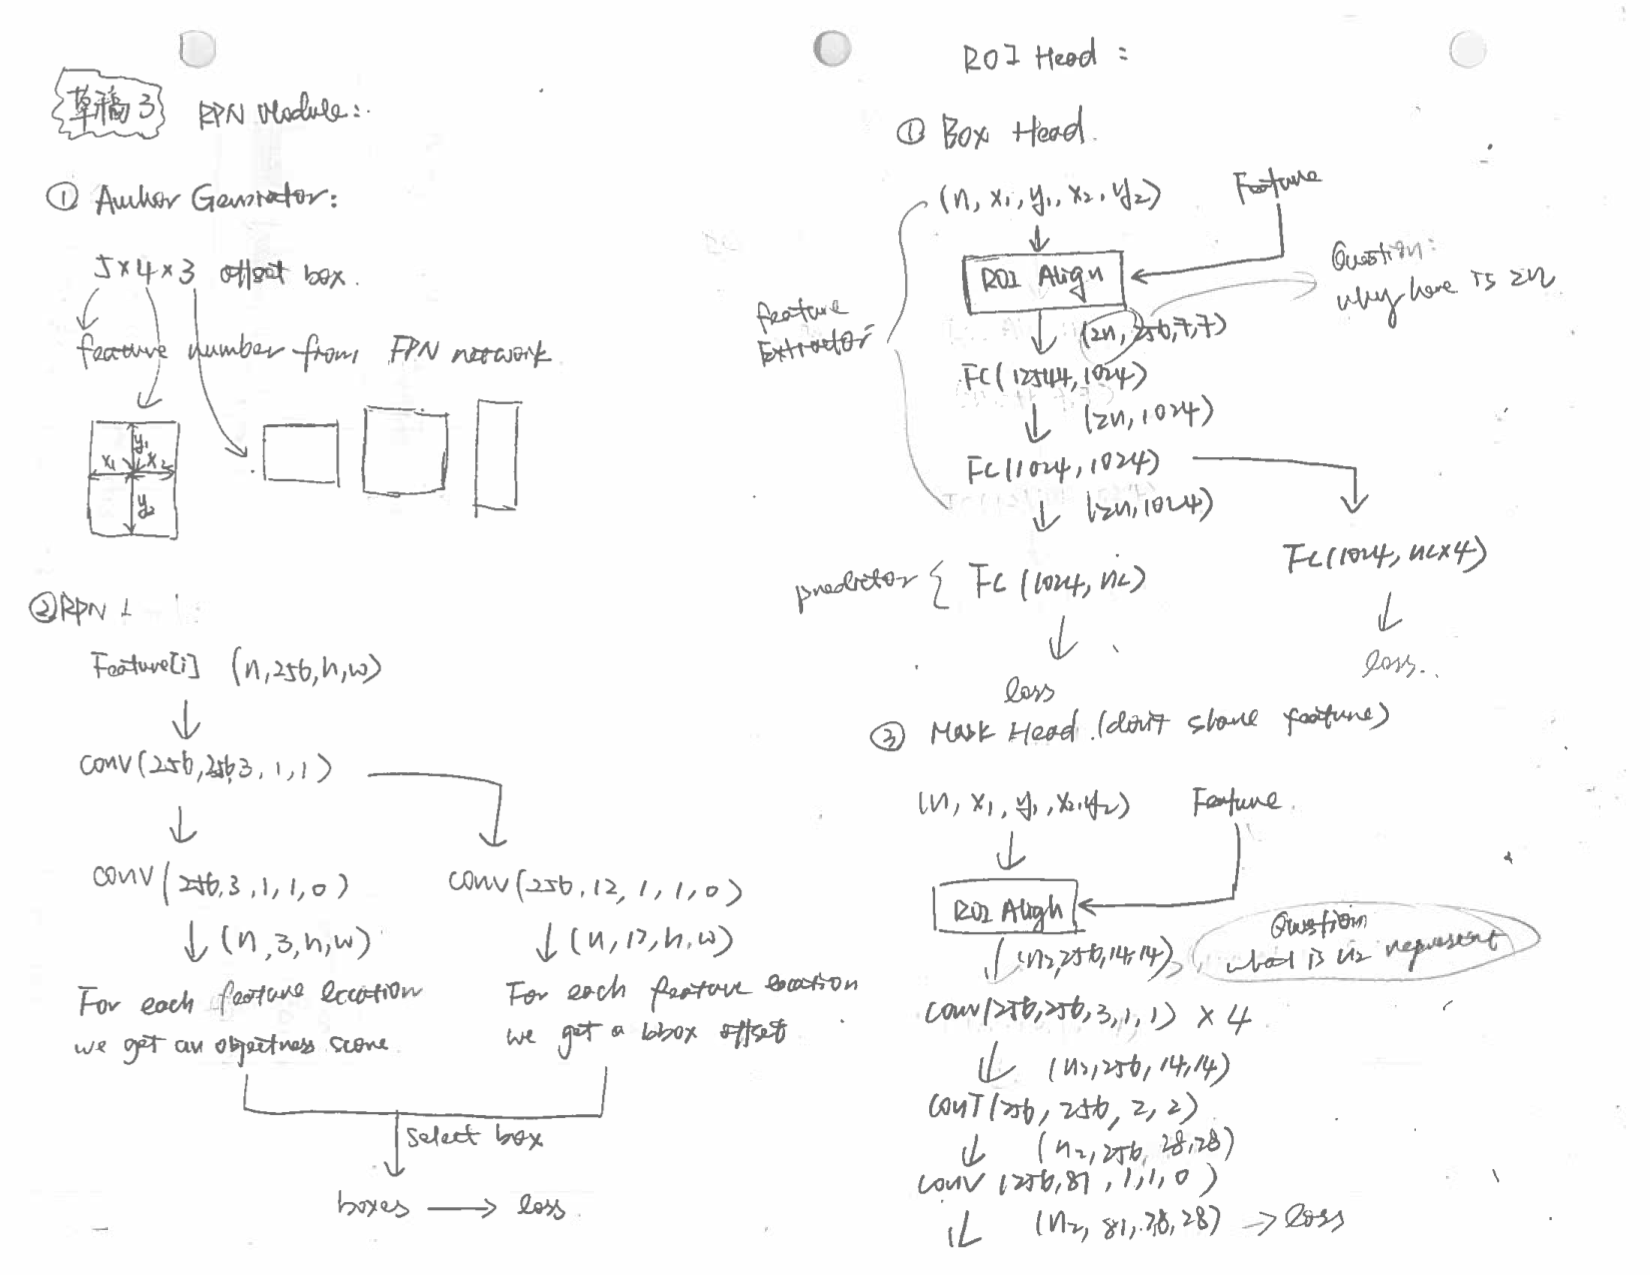 草稿3
RPN Module:
① Anchor Generator:
5×4×3 offset box.
feature number from FPN network
y₁
x₁ x₂
y₂
② RPN :
Feature[i] (n,256,h,w)
conv(256,256,3,1,1)
conv(256,3,1,1,0)
conv(256,12,1,1,0)
(n,3,h,w)
(n,12,h,w)
For each feature location
we get an objectness score
For each feature location
we get a bbox offset
select box
boxes → loss
ROI Head :
① Box Head.
(n, x₁, y₁, x₂, y₂)
Feature
ROI Align
Question:
why here is 2n
feature
Extractor
(2n,256,7,7)
FC(12544,1024)
(2n,1024)
FC(1024,1024)
(2n,1024)
predictor { FC (1024, nc)
FC(1024, nc×4)
loss
loss..
③ Mask Head. (don't share feature)
(n, x₁, y₁, x₂, y₂)
Feature.
ROI Align
(n₂,256,14,14)
Question
what is n₂ represent
conv(256,256,3,1,1) × 4
(n₂,256,14,14)
conT(256, 256, 2, 2)
(n₂,256, 28,28)
conv (256,81,1,1,0)
(n₂, 81, 28, 28) → loss